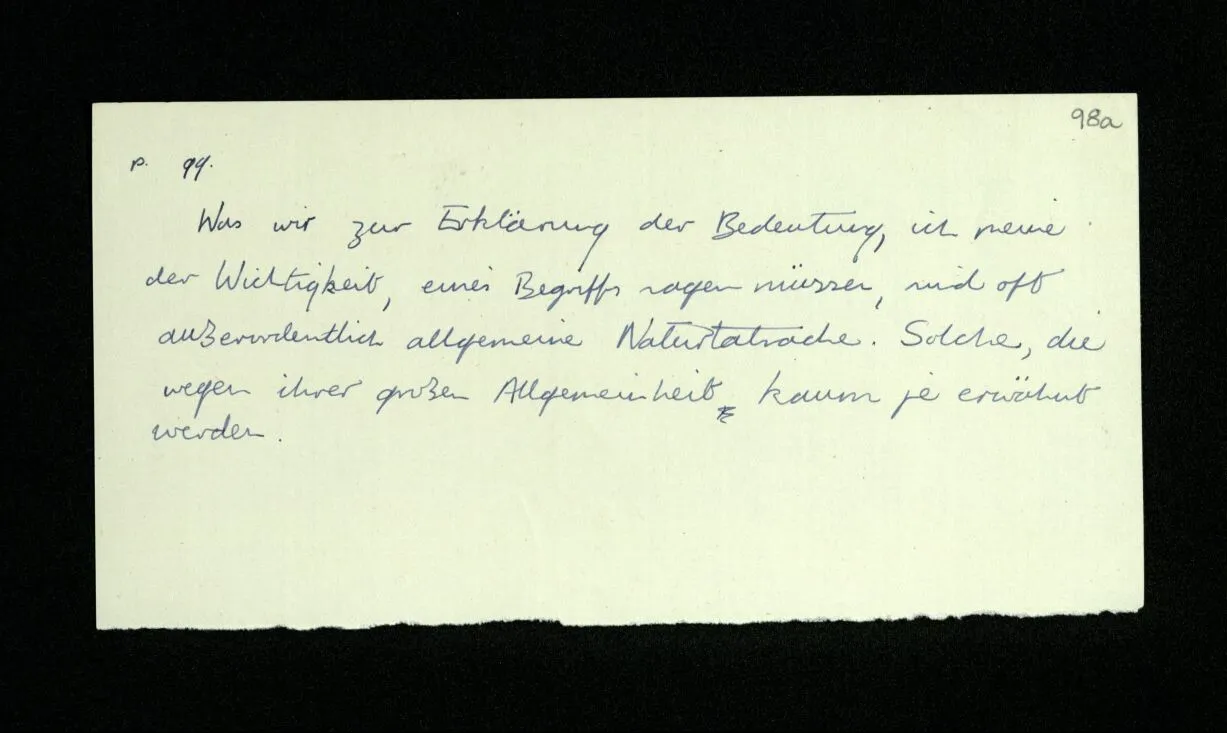 98a
p. 99.
Was wir zur Erklärung der Bedeutung, ich meine
der Wichtigkeit, eines Begriffs sagen müssen, sind oft
außerordentlich allgemeine Naturtatsache. Solche, die
wegen ihrer großen Allgemeinheit kaum je erwähnt
werden.